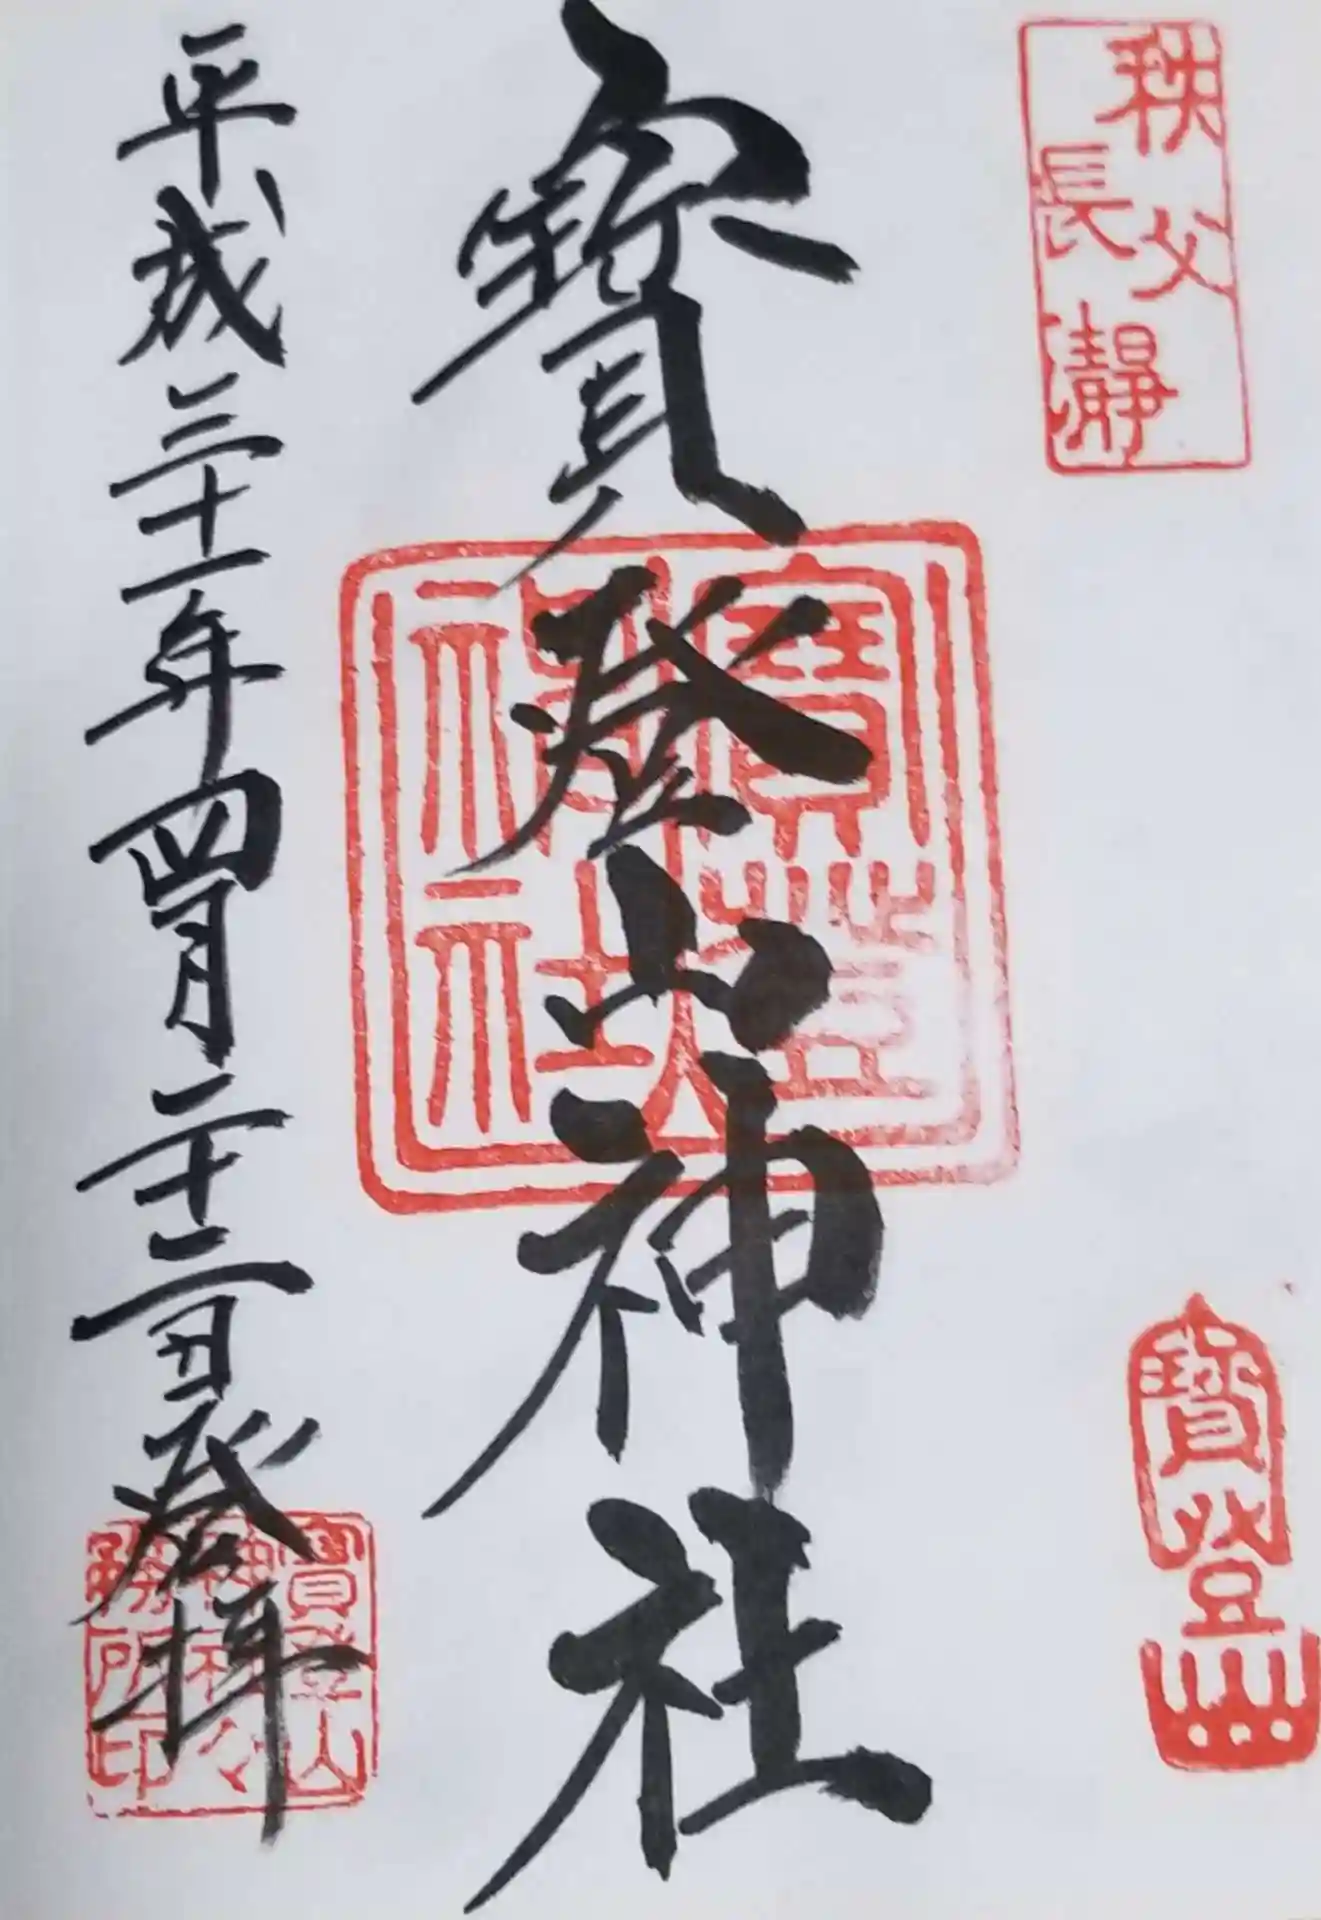 秩父
長瀞
寶登山
寶登山神社
寶登山神社
平成三十一年四月二十二日登拝
寶登山
神社々
務所印